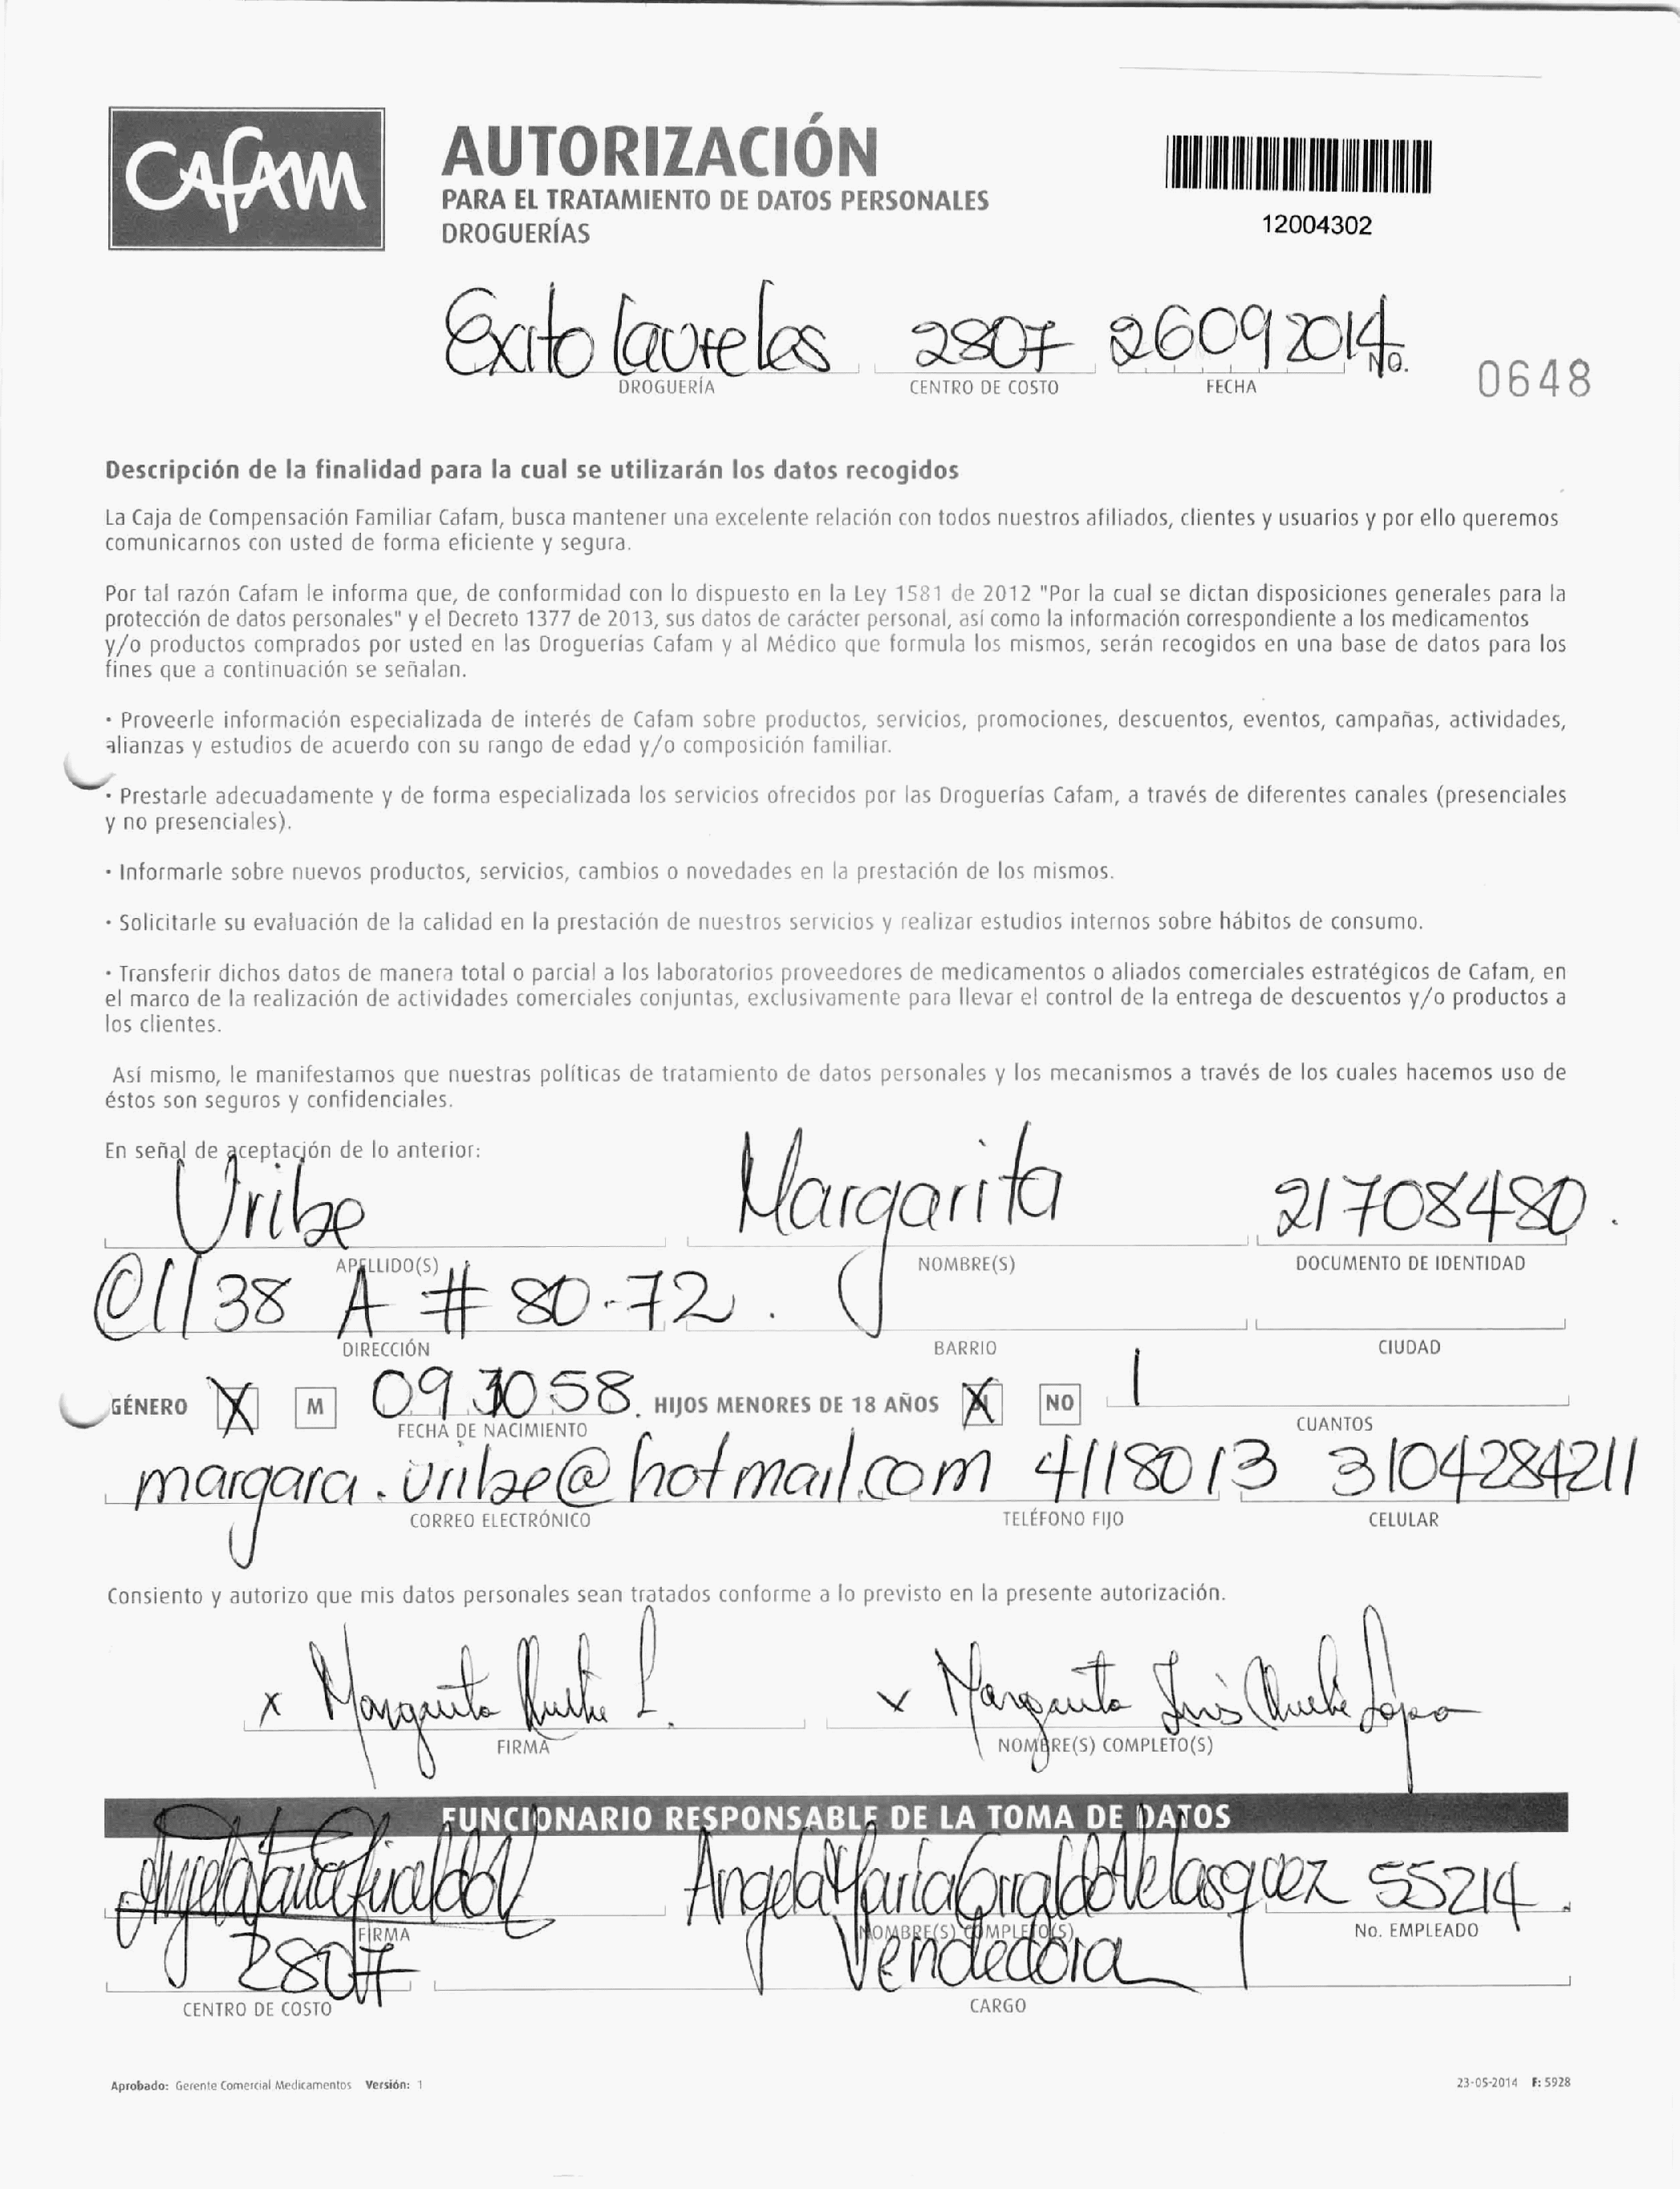 CAFAM
AUTORIZACIÓN
PARA EL TRATAMIENTO DE DATOS PERSONALES
DROGUERÍAS
12004302
Exito Laureles 2807 26092014
DROGUERÍA CENTRO DE COSTO FECHA No. 0648
Descripción de la finalidad para la cual se utilizarán los datos recogidos
La Caja de Compensación Familiar Cafam, busca mantener una excelente relación con todos nuestros afiliados, clientes y usuarios y por ello queremos
comunicarnos con usted de forma eficiente y segura.
Por tal razón Cafam le informa que, de conformidad con lo dispuesto en la Ley 1581 de 2012 "Por la cual se dictan disposiciones generales para la
protección de datos personales" y el Decreto 1377 de 2013, sus datos de carácter personal, así como la información correspondiente a los medicamentos
y/o productos comprados por usted en las Droguerías Cafam y al Médico que formula los mismos, serán recogidos en una base de datos para los
fines que a continuación se señalan.
· Proveerle información especializada de interés de Cafam sobre productos, servicios, promociones, descuentos, eventos, campañas, actividades,
alianzas y estudios de acuerdo con su rango de edad y/o composición familiar.
· Prestarle adecuadamente y de forma especializada los servicios ofrecidos por las Droguerías Cafam, a través de diferentes canales (presenciales
y no presenciales).
· Informarle sobre nuevos productos, servicios, cambios o novedades en la prestación de los mismos.
· Solicitarle su evaluación de la calidad en la prestación de nuestros servicios y realizar estudios internos sobre hábitos de consumo.
· Transferir dichos datos de manera total o parcial a los laboratorios proveedores de medicamentos o aliados comerciales estratégicos de Cafam, en
el marco de la realización de actividades comerciales conjuntas, exclusivamente para llevar el control de la entrega de descuentos y/o productos a
los clientes.
Así mismo, le manifestamos que nuestras políticas de tratamiento de datos personales y los mecanismos a través de los cuales hacemos uso de
éstos son seguros y confidenciales.
En señal de aceptación de lo anterior:
Uribe Margarita 21708480.
APELLIDO(S) NOMBRE(S) DOCUMENTO DE IDENTIDAD
Cll 38 A # 80-72.
DIRECCIÓN BARRIO CIUDAD
GÉNERO X M 09 58. HIJOS MENORES DE 18 AÑOS X NO 1
FECHA DE NACIMIENTO CUANTOS
margara.uribe@hotmail.com 4118013 3104284211
CORREO ELECTRÓNICO TELÉFONO FIJO CELULAR
Consiento y autorizo que mis datos personales sean tratados conforme a lo previsto en la presente autorización.
x Margarita Uribe L. x Margarita Inés Uribe López
FIRMA NOMBRE(S) COMPLETO(S)
FUNCIONARIO RESPONSABLE DE LA TOMA DE DATOS
Angela Maria Giraldo V Angela Maria Giraldo Velasquez 55214.
FIRMA NOMBRE(S) COMPLETO(S) No. EMPLEADO
2807 Vendedora
CENTRO DE COSTO CARGO
Aprobado: Gerente Comercial Medicamentos Versión: 1 23-05-2014 F: 5928